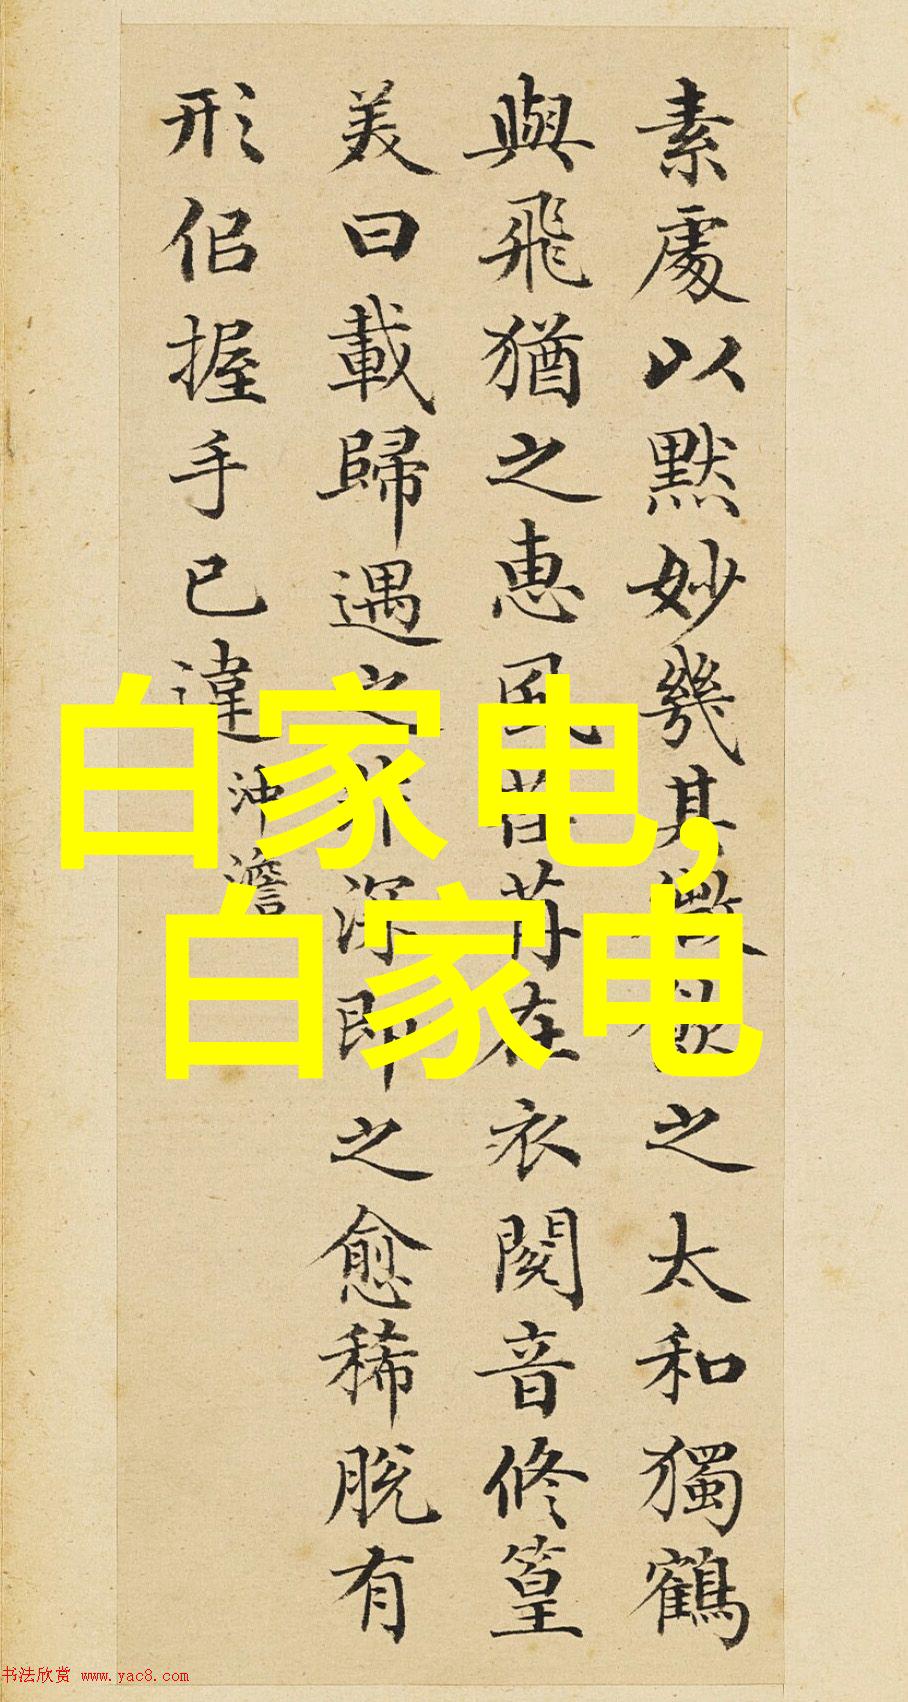 素處以默妙幾其微飲之太和獨鶴
與飛猶之惠風荏苒在衣閱音修篁
美曰載歸遇之非深即之愈稀脫有
形佀握手已違沖澹
白家电,
白家电
书法欣赏 www.yac8.com